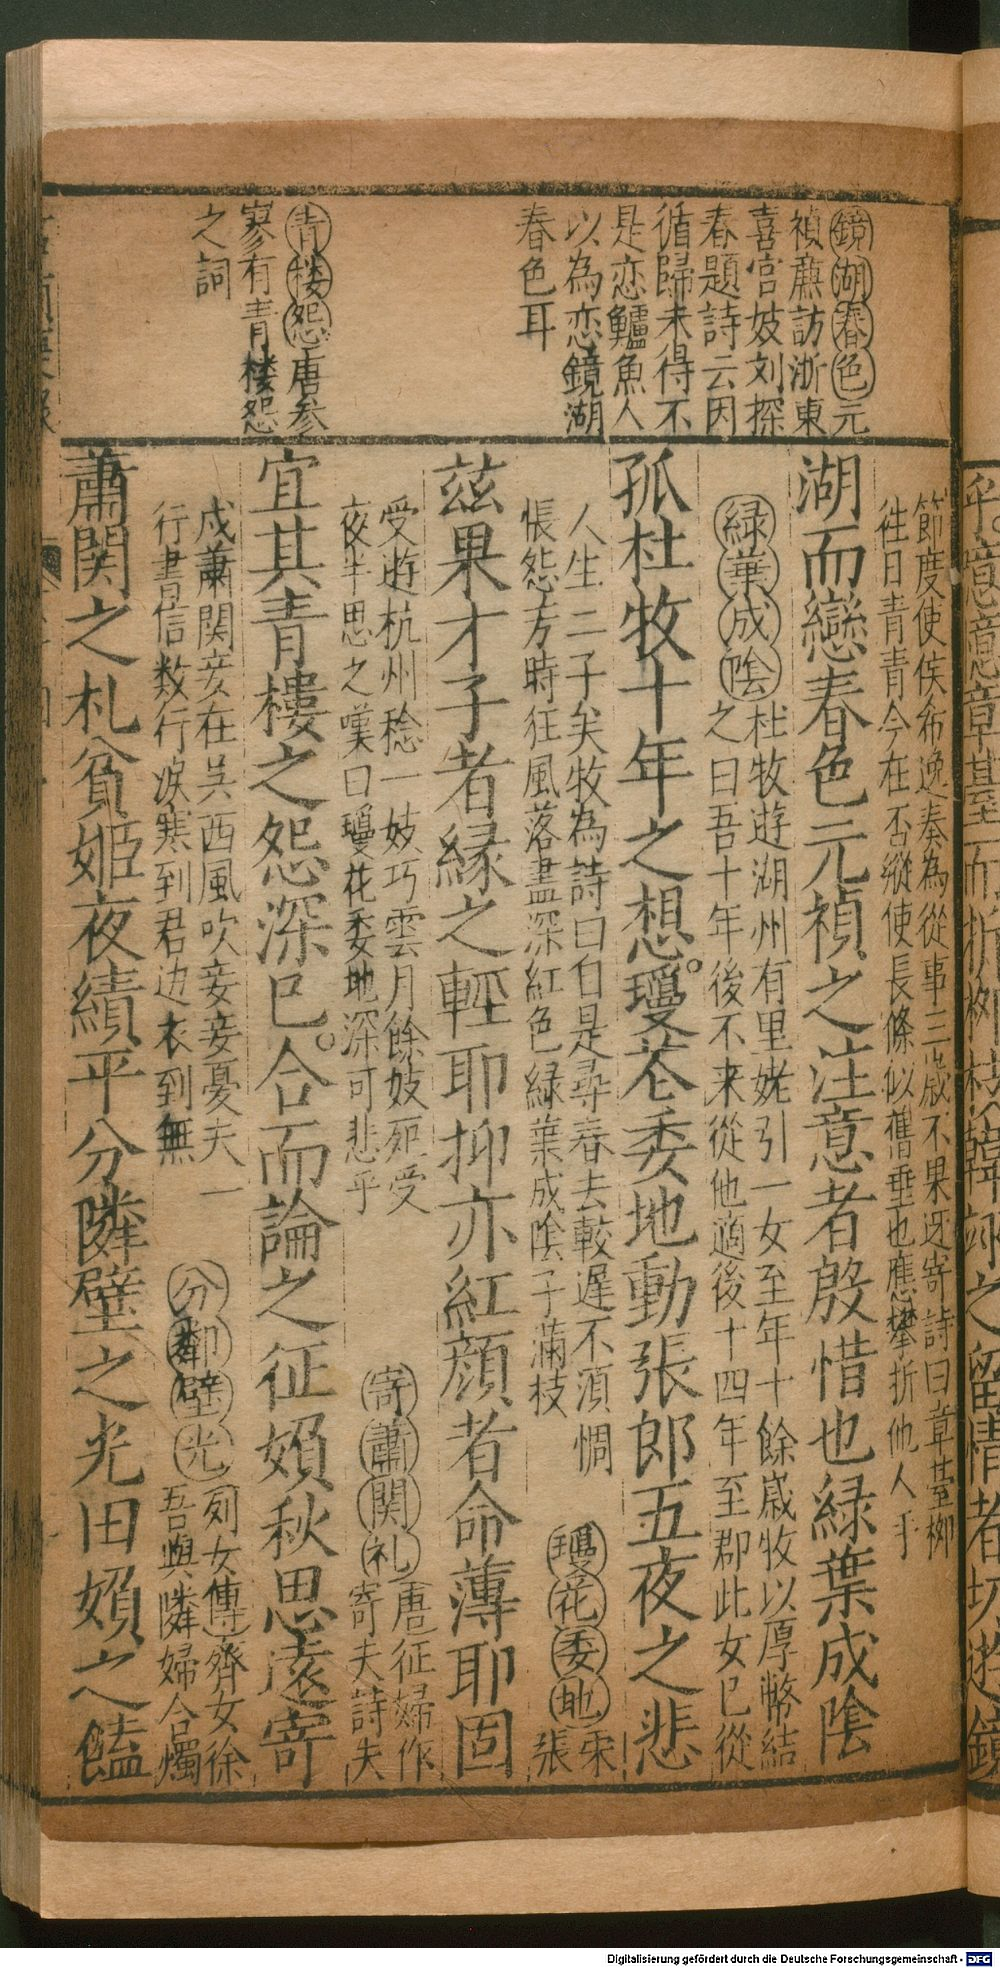 鏡湖春色元
禎廉訪浙東
喜宫妓刘探
春題詩云因
循歸未得不
是恋鱸魚人
以為恋鏡湖
春色耳
青楼怨唐參
寥有青楼怨
之詞
節度使侯希逸奏為從事三嵗不果迓寄詩曰章䑓栁
徃日青青今在否縱使長條似舊垂也應攀折他人手
湖而戀春色元禎之注意者殷惜也緑葉成隂
緑葉成隂杜牧遊湖州有里姥引一女至年十餘嵗牧以厚幣結
之曰吾十年後不来從他適後十四年至郡此女已從
孤杜牧十年之想。瓊花委地動張郎五夜之悲
人生二子矣牧為詩曰自是尋春去較遲不湏惆
悵怨方時狂風落盡深紅色緑葉成隂子滿枝
瓊花委地宋
張
兹果才子者縁之輕耶抑亦紅顔者命薄耶固
受遊杭州稔一妓巧雲月餘妓死受
夜半思之嘆曰瓊花委地深可悲乎
寄蕭関札唐征婦作
寄夫詩夫
宜其青樓之怨深已。合而論之征婦秋思遠寄
戍蕭関妾在吴西風吹妾妾憂夫一
行書信数行淚寒到君边衣到無
分鄰壁光列女傳齊女徐
吾與隣婦合燭
蕭関之札貧姬夜績平分隣壁之光田婦之饁
Digitalisierung gefördert durch die Deutsche Forschungsgemeinschaft - DFG